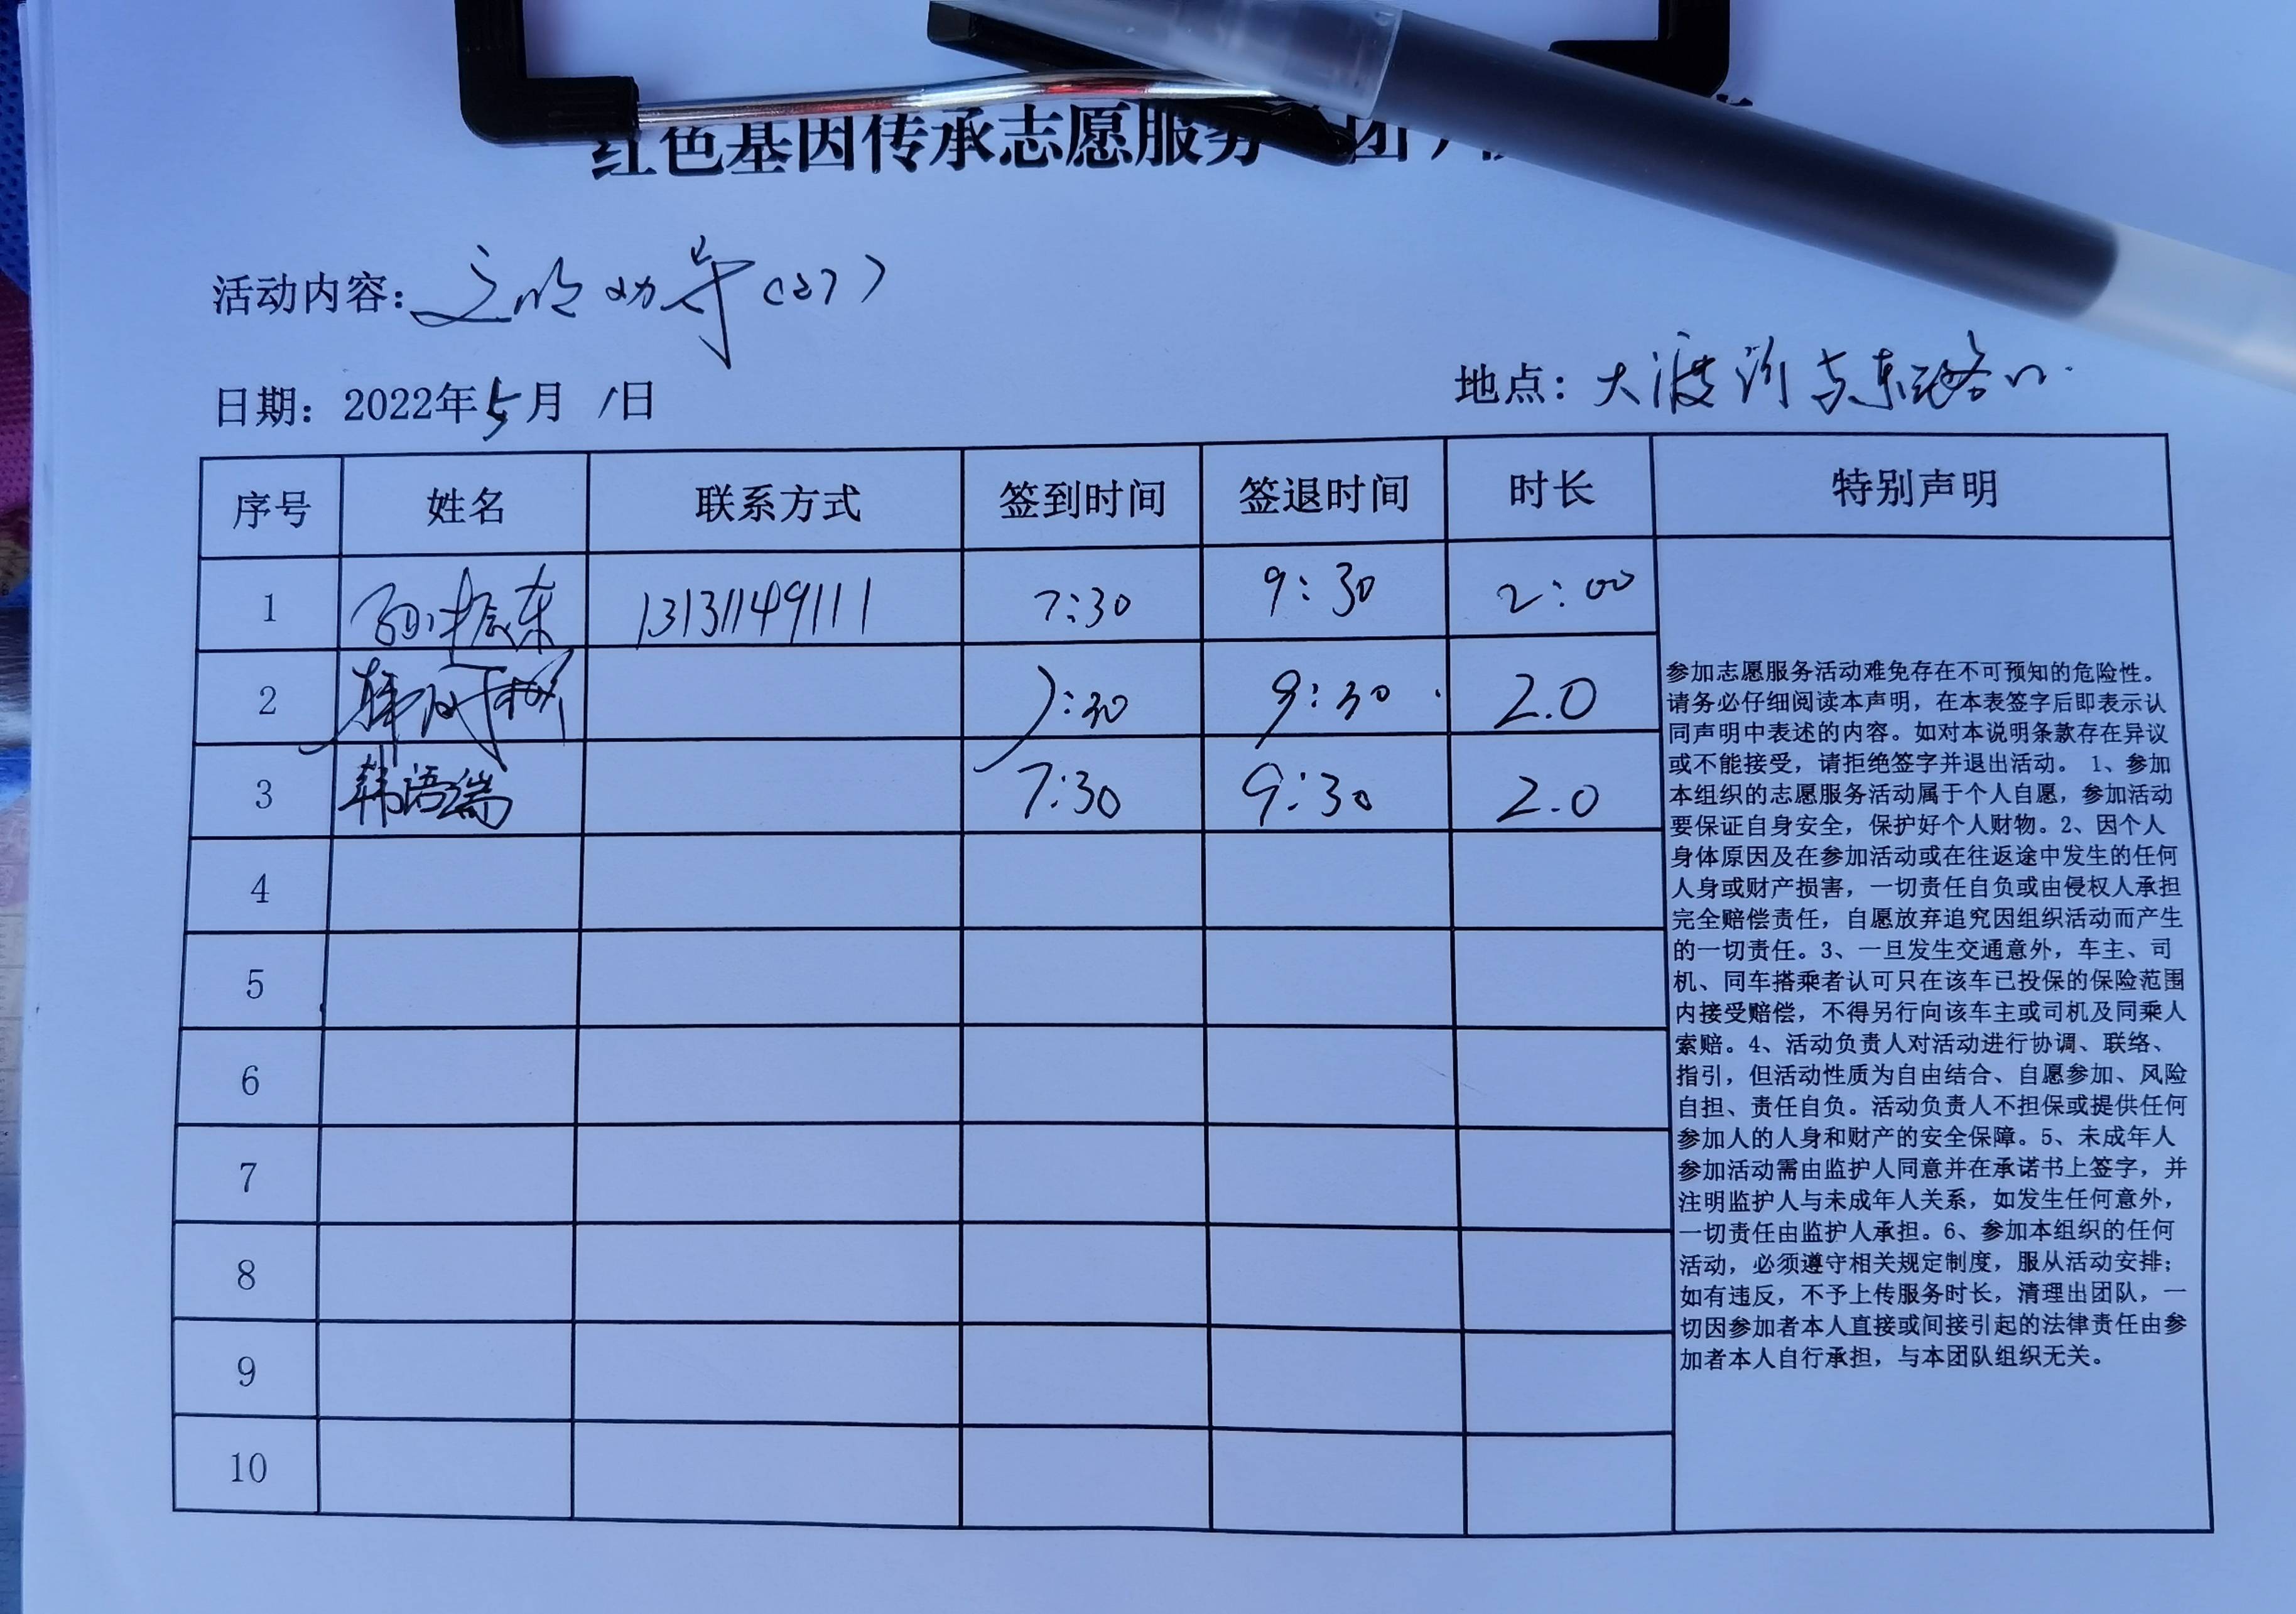 红色基因传承志愿服务 团
活动内容：文明劝导(27)
日期：2022年5月1日
地点：大渡河 东路口
序号 姓名 联系方式 签到时间 签退时间 时长 特别声明
1 振东 13131149111 7:30 9:30 2:00
2 韩 7:30 9:30 2.0
3 韩语瑞 7:30 9:30 2.0
4
5
6
7
8
9
10
参加志愿服务活动难免存在不可预知的危险性。
请务必仔细阅读本声明，在本表签字后即表示认
同声明中表述的内容。如对本说明条款存在异议
或不能接受，请拒绝签字并退出活动。 1、参加
本组织的志愿服务活动属于个人自愿，参加活动
要保证自身安全，保护好个人财物。2、因个人
身体原因及在参加活动或在往返途中发生的任何
人身或财产损害，一切责任自负或由侵权人承担
完全赔偿责任，自愿放弃追究因组织活动而产生
的一切责任。3、一旦发生交通意外，车主、司
机、同车搭乘者认可只在该车已投保的保险范围
内接受赔偿，不得另行向该车主或司机及同乘人
索赔。4、活动负责人对活动进行协调、联络、
指引，但活动性质为自由结合、自愿参加、风险
自担、责任自负。活动负责人不担保或提供任何
参加人的人身和财产的安全保障。5、未成年人
参加活动需由监护人同意并在承诺书上签字，并
注明监护人与未成年人关系，如发生任何意外，
一切责任由监护人承担。6、参加本组织的任何
活动，必须遵守相关规定制度，服从活动安排；
如有违反，不予上传服务时长，清理出团队，一
切因参加者本人直接或间接引起的法律责任由参
加者本人自行承担，与本团队组织无关。